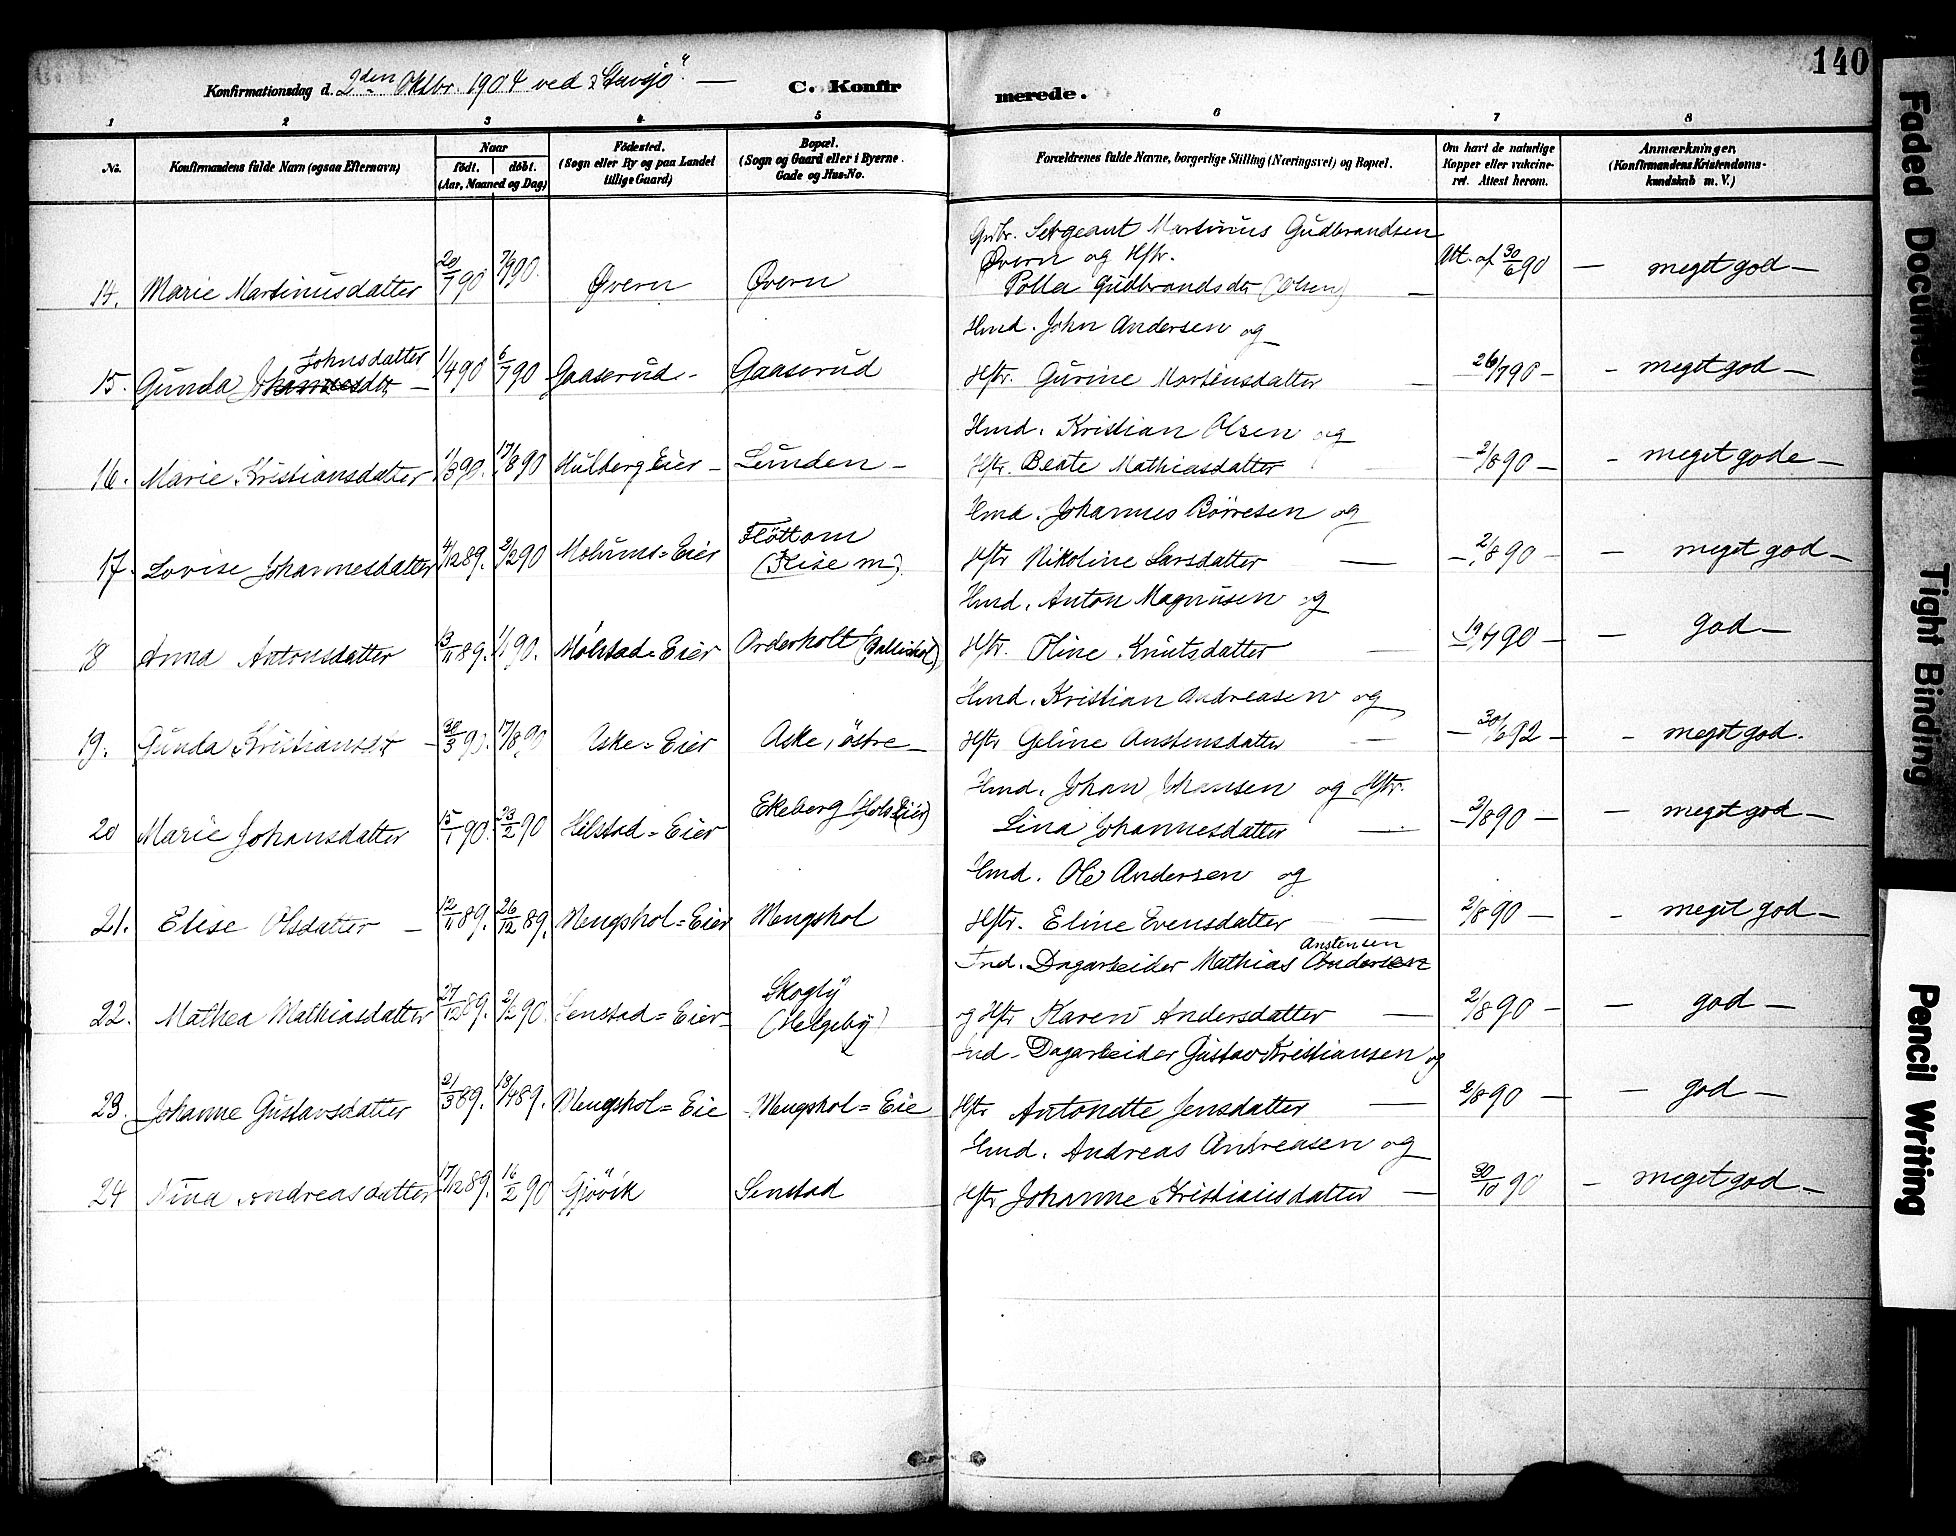 140
Konfirmationsdag d. 2den Oktbr. 1904 ved "Stavsjø" — C. Konfirmerede.
1 2 3 4 5 6 7 8
No. Konfirmandens fulde Navn (ogsaa Efternavn) Naar født. døbt. (Aar, Maaned og Dag) Fødested. (Sogn eller By og paa Landet tillige Gaard) Bopæl. (Sogn og Gaard eller i Byerne Gade og Hus-No. Forældrenes fulde Navne, borgerlige Stilling (Næringsvei) og Bopæl. Om havt de naturlige Kopper eller vakcineret. Attest herom. Anmærkninger, (Konfirmandens Kristendomskundskab m. V.)
Gbr. Sergeant Martinius Gudbrandsen
Øvern og Hstr.
14. Marie Martinusdatter 20/7 90 7/9 90. Øvern Øvern Polla Gudbrandsdtr (Olsen) — Att. af 30/6 90 — meget god —
Hmd. John Andersen og
Johnsdatter
15. Gunda Johannesdtr — 1/4 90 6/7 90 Gaaserud - Gaaserud Hstr. Gurine Martinsdatter — 26/7 90 — — meget god —
Hmd. Kristian Olsen og
16. Marie Kristiansdatter 11/3 90. 17/8 90 Hulberg Eier — Lunden — Hstr. Beate Mathiasdatter — 2/8 90 — — meget gode —
Hmd. Johannes Börresen og
17. Lovise Johannesdatter 4/12 89. 2/2 90 Mohums = Eier Flöttom (Kise m.) Hstr Nikoline Larsdatter — 2/8 90 — — meget god —
Hmd. Anton Magnusen og
18 Anna Antonsdatter 13/11 89. 1/1 90. Molstad = Eier Orderholt Hstr. Oline Knutsdatter — 19/7 90 — — god —
Hmd. Kristian Andreasen og
19. Gunda Kristiansdtr — 30/3 90. 17/8 90 Aske = Eier Aske, östre — Hstr Geline Anstensdatter — 30/6 92 — — meget god.
Hmd. Johan Johansen og Hstr.
20 Marie Johansdatter 15/1 90. 23/2 90 Hilstad = Eier Ekeberg (Hols Eier) Lina Johannesdatter — 2/8 90 — — meget god —
Hmd. Ole Andersen og
21. Elise Olsdatter — 12/11 89. 26/12 89. Mengshol = Eier Mengshol Hstr. Eline Evensdatter — 2/8 90 — — meget god —
Anstensen
Ind. Dagarbeider Mathias Andersen
22. Mathea Mathiasdatter 27/12 89. 2/2 90. Senstad = Eier - Skogly (Helgeby) og Hstr Karen Andersdatter — 2/8 90 — — god —
Ind. Dagarbeider Gustav Kristiansen og
23. Johanne Gustavsdatter 21/3 89. 13/4 89. Mengshol = Eie Mengshol = Eie Hstr Antonette Jensdatter — 2/8 90 — — god —
Hmd. Andreas Andreasen og
24 Nina Andreasdatter 17/12 89. 16/2 90 Gjövik Senstad Hstr Johanne Kristiansdatter — 30/10 90 — meget god —
Faded Document
Tight Binding
Pencil Writing